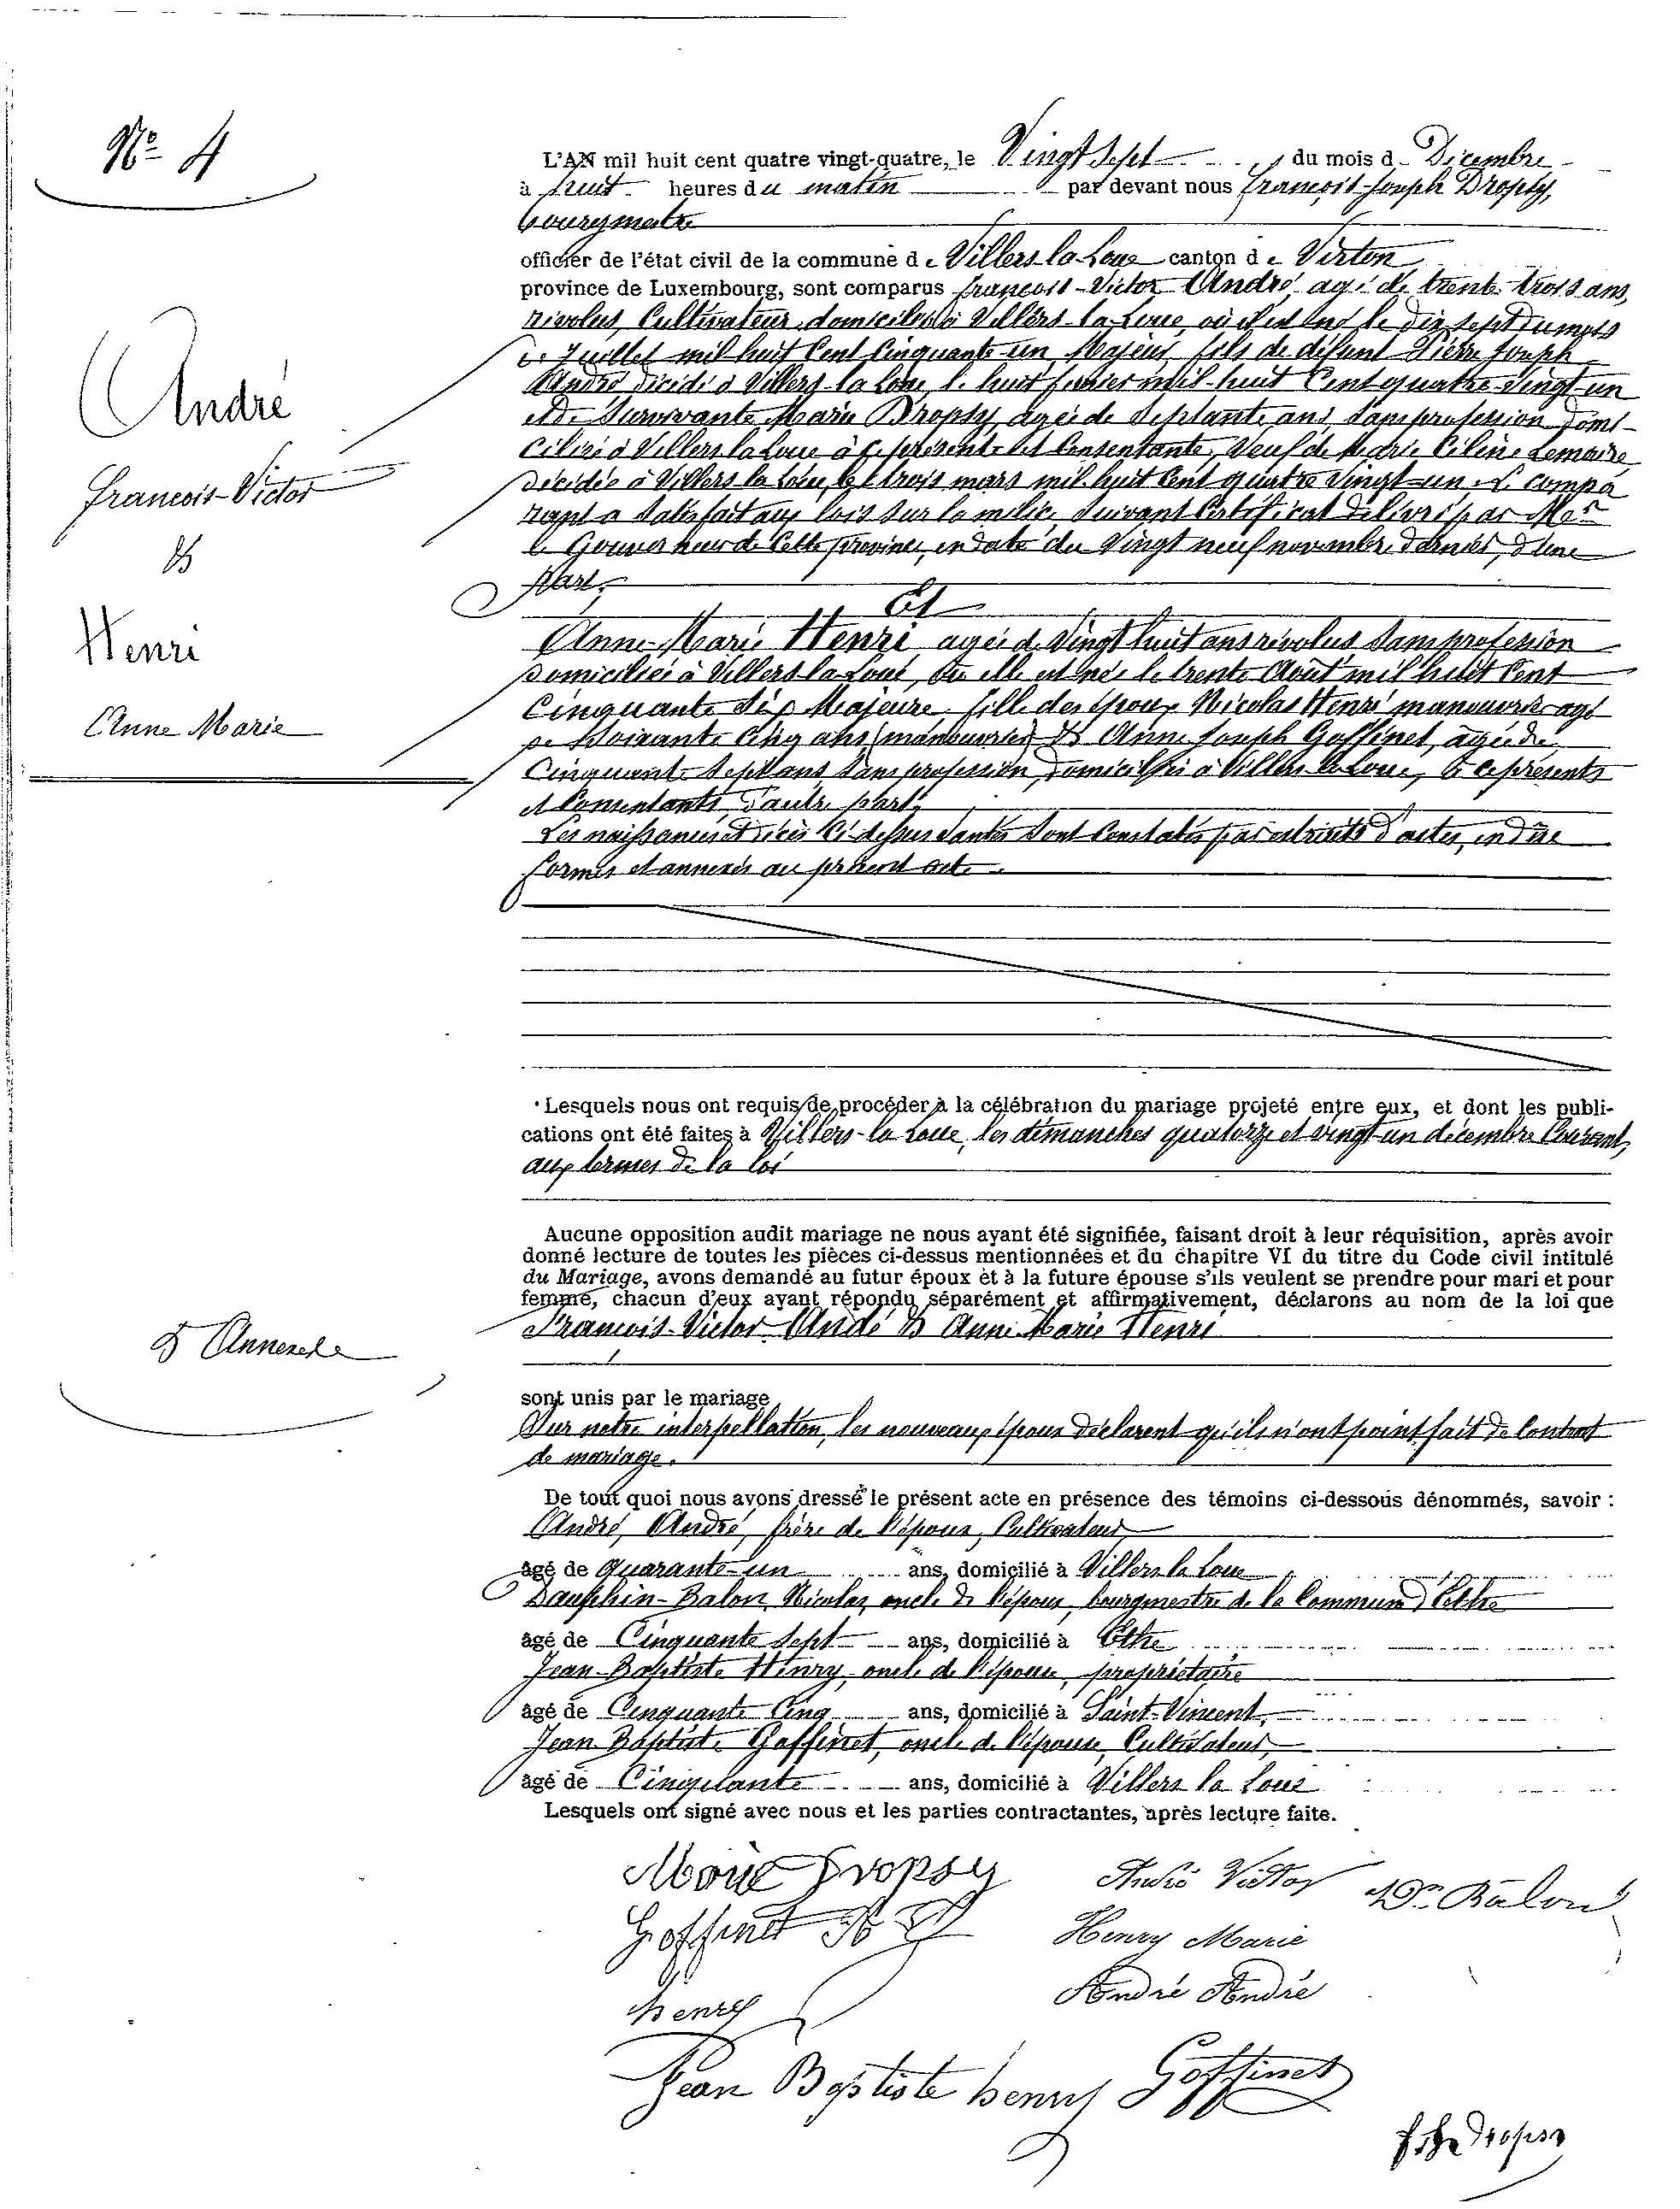 Nº 4
L'AN mil huit cent quatre vingt-quatre, le Vingt Sept du mois d Décembre
à huit heures du matin par devant nous François-Joseph Dropsy,
bourgmestre
officier de l'état civil de la commune de Villers-la-Loue canton de Virton
province de Luxembourg, sont comparus François-Victor André, agé de trente-trois ans,
révolus, Cultivateur, domicilié à Villers-la-Loue, où il est né le dix sept du mois
de Juillet mil huit Cent Cinquante un, Majeur, fils de défunt Pierre Joseph
André, décédé à Villers-la-Loue, le huit février mil-huit Cent quatre-Vingt-un
et de Survivante Marie Dropsy, agée de Septante ans, Sans profession, domi-
ciliée à Villers la Loue à ce présente et Consentante, Veuf de Marie Céline Lemaire
décédée à Villers la Loue, le trois mars mil huit Cent quatre Vingt-un. Le compa
rant a Satisfait aux lois sur la milice, Suivant Certificat délivré par Mr
le Gouverneur de Cette province, en date du Vingt neuf novembre dernier, d'une
part,
André
François-Victor
&
Henri
Anne Marie
Et
Anne-Marie Henri agée de Vingt huit ans révolus Sans profession
domiciliée à Villers-la-Loue, où elle est née le trente Août mil huit Cent
Cinquante Six, Majeure, fille des époux Nicolas Henri manouvrier agé
de Soixante Cinq ans (manouvrier) & Anne Joseph Goffinet, agée de
Cinquante Sept ans Sans profession, domiciliés à Villers la Loue, à ce présents
et Consentants, d'autre part.
Les naissances et décès Ci-dessus sont Constatés par extraits d'actes, en due
formes et annexés au présent acte.
Lesquels nous ont requis de procéder à la célébration du mariage projeté entre eux, et dont les publi-
cations ont été faites à Villers-la-Loue, les dimanches quatorze et vingt-un décembre Courant,
aux termes de la loi
Aucune opposition audit mariage ne nous ayant été signifiée, faisant droit à leur réquisition, après avoir
donné lecture de toutes les pièces ci-dessus mentionnées et du chapitre VI du titre du Code civil intitulé
du Mariage, avons demandé au futur époux et à la future épouse s'ils veulent se prendre pour mari et pour
femme, chacun d'eux ayant répondu séparément et affirmativement, déclarons au nom de la loi que
François-Victor Andé & Anne Marie Henri
sont unis par le mariage
Sur notre interpellation, les nouveaux époux déclarent qu'ils n'ont point fait de Contrat
de mariage.
De tout quoi nous avons dressé le présent acte en présence des témoins ci-dessous dénommés, savoir :
André, André, frère de l'époux, Cultivateur
âgé de quarante-un ans, domicilié à Villers la Loue
Dauphin-Balon, Nicolas, oncle de l'époux, bourgmestre de la Commune d'Ethe
âgé de Cinquante Sept ans, domicilié à Ethe
Jean-Baptiste Henry, oncle de l'épouse, propriétaire
âgé de Cinquante Cinq ans, domicilié à Saint-Vincent,
Jean Baptiste Goffinet, oncle de l'épouse, Cultivateur,
âgé de Cinquante ans, domicilié à Villers la Loue
Lesquels ont signé avec nous et les parties contractantes, après lecture faite.
Marie Dropsy
André Victor
Dn Balon
Goffinet
Henry Marie
henry
André André
Jean Baptiste henry
Goffinet
Dropsy